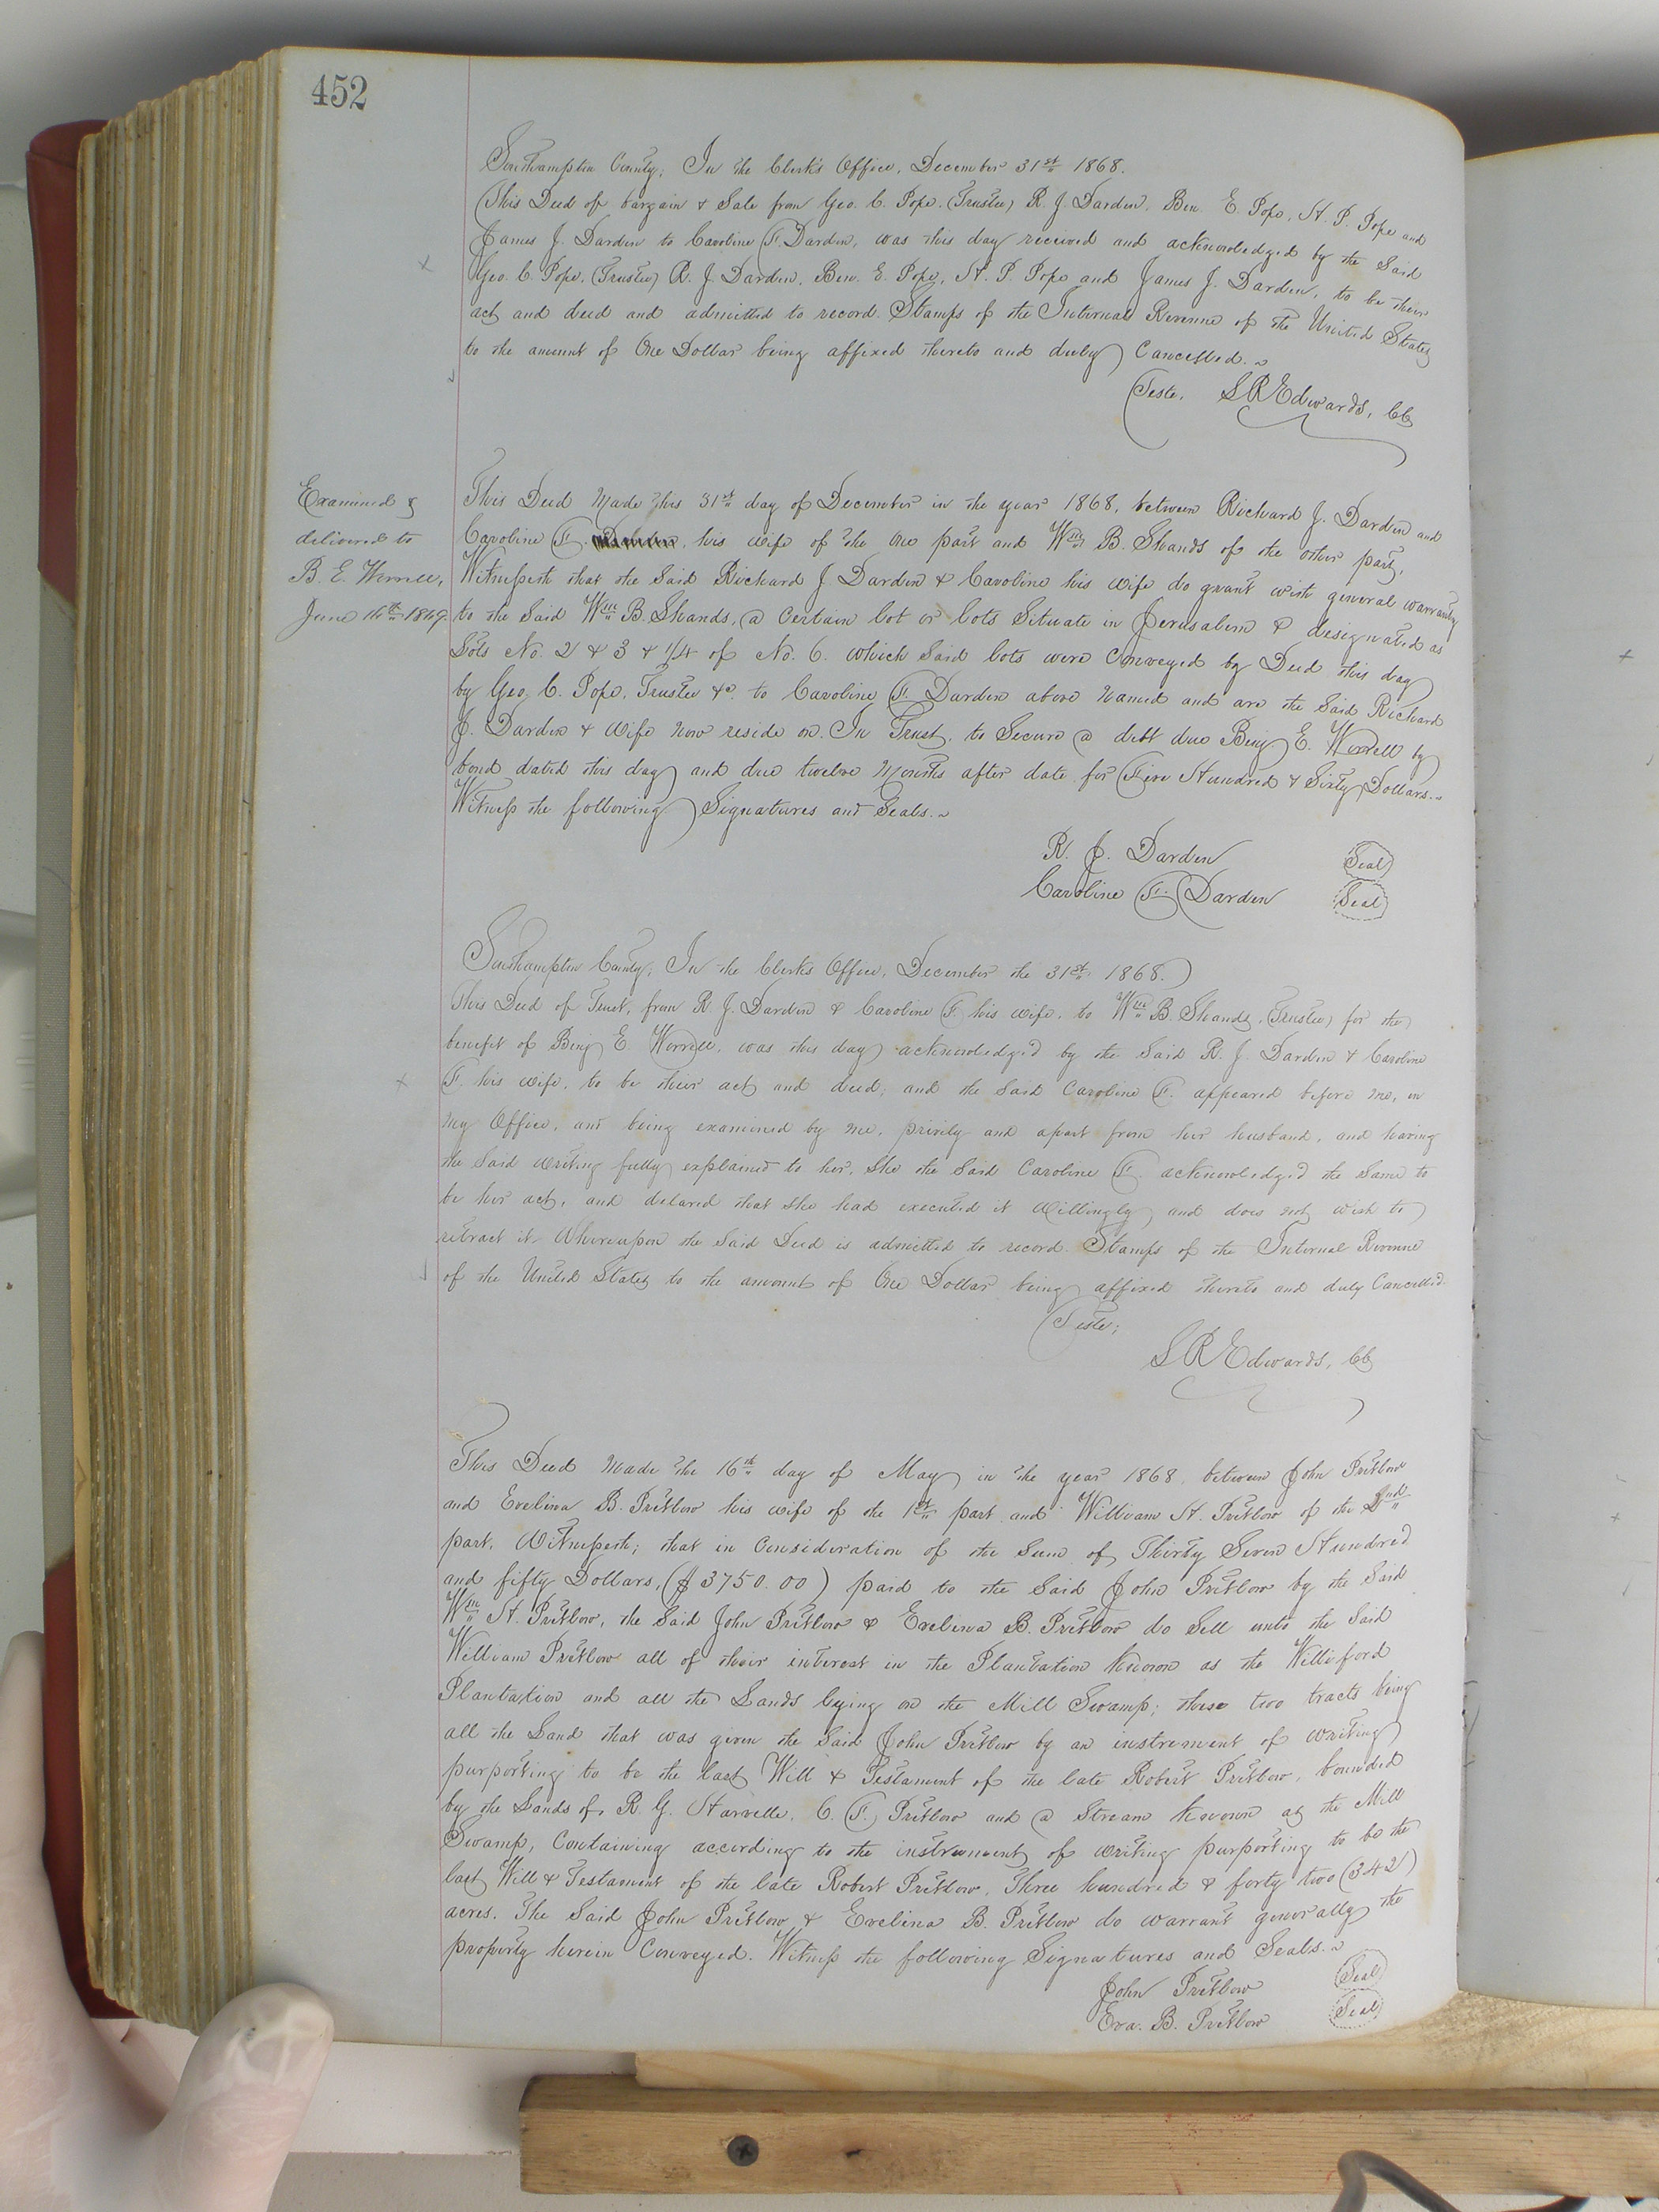 452
Southampton County; In the Clerk's Office, December 31st 1868.
This Deed of bargain & Sale from Geo. C. Pope, (Trustee) R. J. Darden, Ben. E. Pope, H. P. Pope and
James J. Darden to Caroline F. Darden, was this day received and acknowledged by the Said
Geo. C. Pope, (Trustee) R. J. Darden, Ben. E. Pope, H. P. Pope and James J. Darden, to be their
act and deed and admitted to record. Stamps of the Internal Revenue of the United States
to the amount of One Dollar being affixed thereto and duly Cancelled.
Teste, S R Edwards, CC
Examined &
delivered to
B. E. Worrell,
June 16th 1869.
This Deed Made this 31st day of December in the year 1868, between Richard J. Darden and
Caroline F. his wife of the One part and Wm B. Shands of the other part,
Witnesseth that the Said Richard J. Darden & Caroline his wife do grant with general warranty
to the Said Wm B. Shands, a Certain lot or lots Situate in Jerusalem & designated as
Lots No. 2 & 3 & 1/4 of No. 6. which Said lots were Conveyed by Deed this day
by Geo. C. Pope, Trustee &c. to Caroline F. Darden above named and are the Said Richard
J. Darden & wife now reside on. In Trust, to Secure a debt due Benj E. Worrell by
bond dated this day and due twelve Months after date for Five Hundred & Sixty Dollars.
Witness the following Signatures and Seals.
R. J. Darden Seal
Caroline F. Darden Seal
Southampton County; In the Clerk's Office, December the 31st, 1868.
This Deed of Trust, from R. J. Darden & Caroline F. his wife, to Wm B. Shands, (Trustee) for the
benefit of Benj E. Worrell, was this day acknowledged by the Said R. J. Darden & Caroline
F. his wife, to be their act and deed; and the Said Caroline F. appeared before me, in
my Office, and being examined by me, privily and apart from her husband, and having
the Said writing fully explained to her, She the Said Caroline F. acknowledged the Same to
be her act, and declared that she had executed it Willingly and does not wish to
retract it. Whereupon the Said Deed is admitted to record. Stamps of the Internal Revenue
of the United States to the amount of One Dollar being affixed thereto and duly Cancelled.
Teste;
S R Edwards, CC
This Deed Made the 16th day of May in the year 1868, between John Pretlow
and Evelina B. Pretlow his wife of the 1st part and William H. Pretlow of the 2nd
part, Witnesseth; that in Consideration of the Sum of Thirty Seven Hundred
and fifty Dollars, ($3750.00) paid to the Said John Pretlow by the Said
Wm H. Pretlow, the Said John Pretlow & Evelina B. Pretlow do Sell unto the Said
William Pretlow all of their interest in the Plantation known as the Williford
Plantation and all the Lands lying on the Mill Swamp; these two tracts being
all the Land that was given the Said John Pretlow by an instrument of writing
purporting to be the last Will & Testament of the late Robert Pretlow, bounded
by the Lands of R. G. Harvelle, C. F. Pretlow and a Stream known as the Mill
Swamp, Containing according to the instrument of writing purporting to be the
last Will & Testament of the late Robert Pretlow, Three hundred & forty two (342)
acres. The Said John Pretlow & Evelina B. Pretlow do warrant generally the
property herein Conveyed. Witness the following Signatures and Seals.
John Pretlow Seal
Eva. B. Pretlow Seal